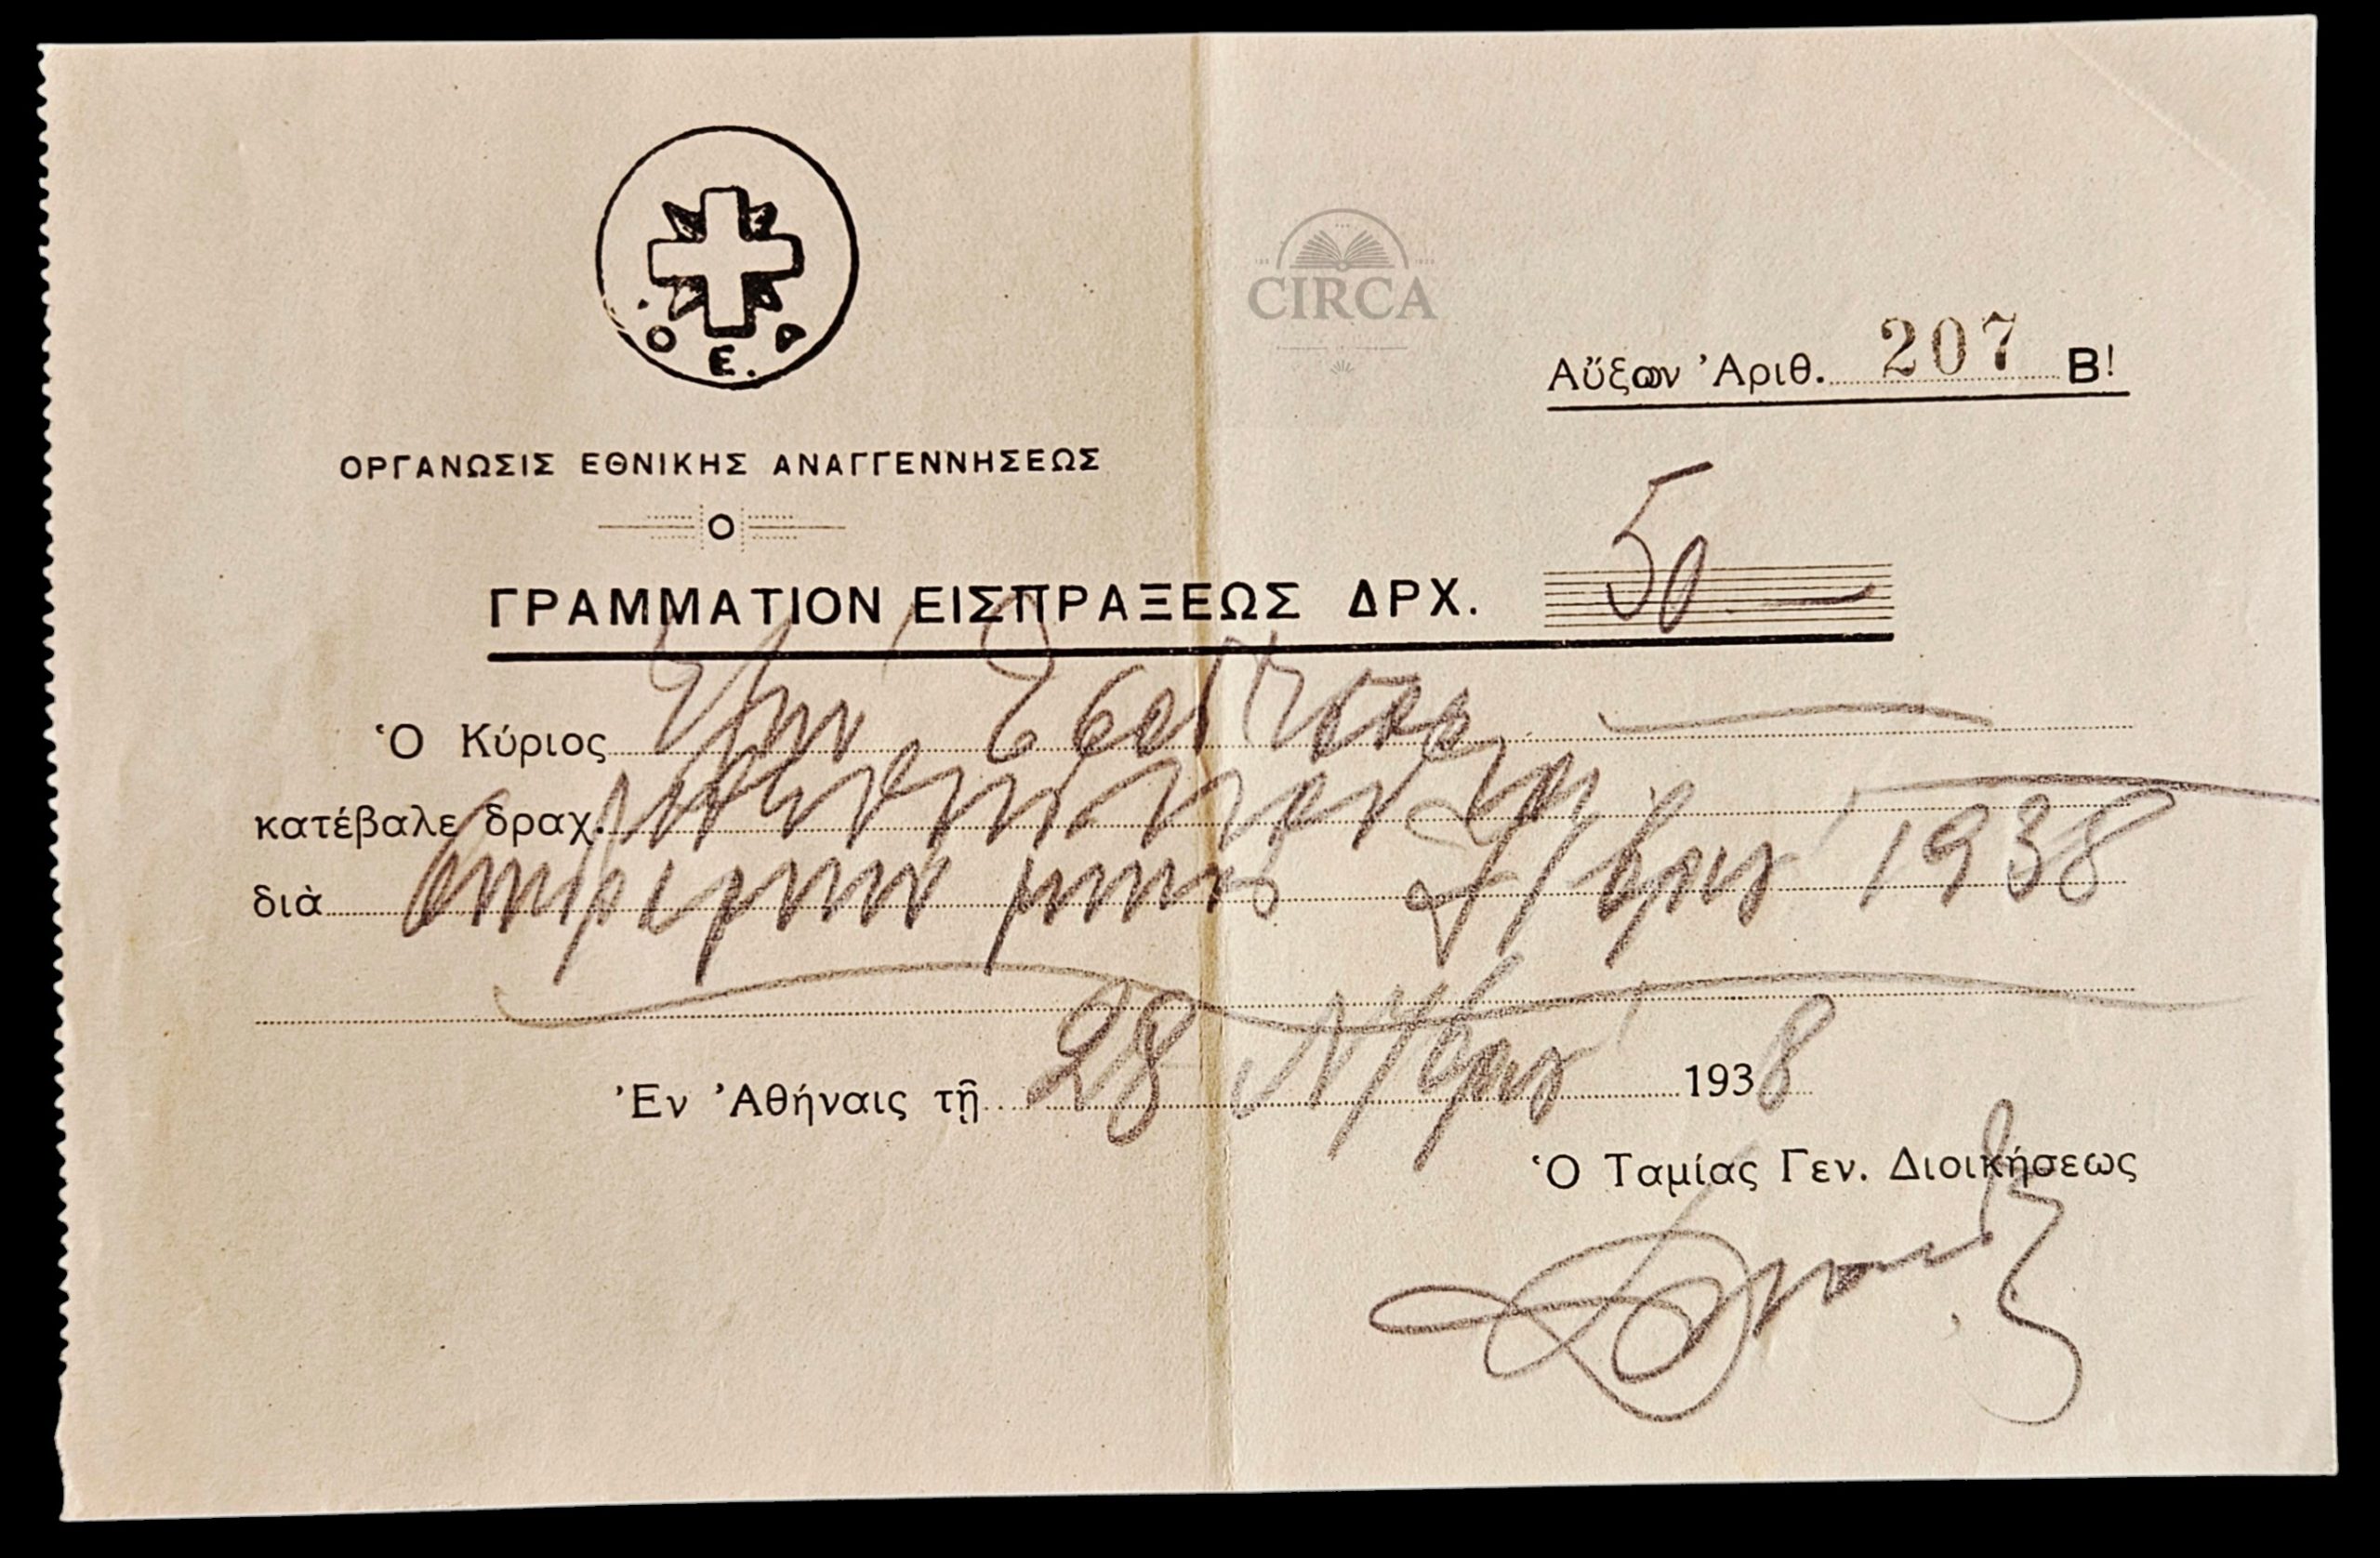 Ο Ε. Α
CIRCA
Αὔξων Ἀριθ. 207 Β!
ΟΡΓΑΝΩΣΙΣ ΕΘΝΙΚΗΣ ΑΝΑΓΓΕΝΝΗΣΕΩΣ
ΓΡΑΜΜΑΤΙΟΝ ΕΙΣΠΡΑΞΕΩΣ ΔΡΧ. 50
Ὁ Κύριος
κατέβαλε δραχ. πεντήκοντα
διὰ συνδρομήν μηνός 7/βρίου 1938
Ἐν Ἀθήναις τῇ 28 Ν/βρίου 1938
Ὁ Ταμίας Γεν. Διοικήσεως